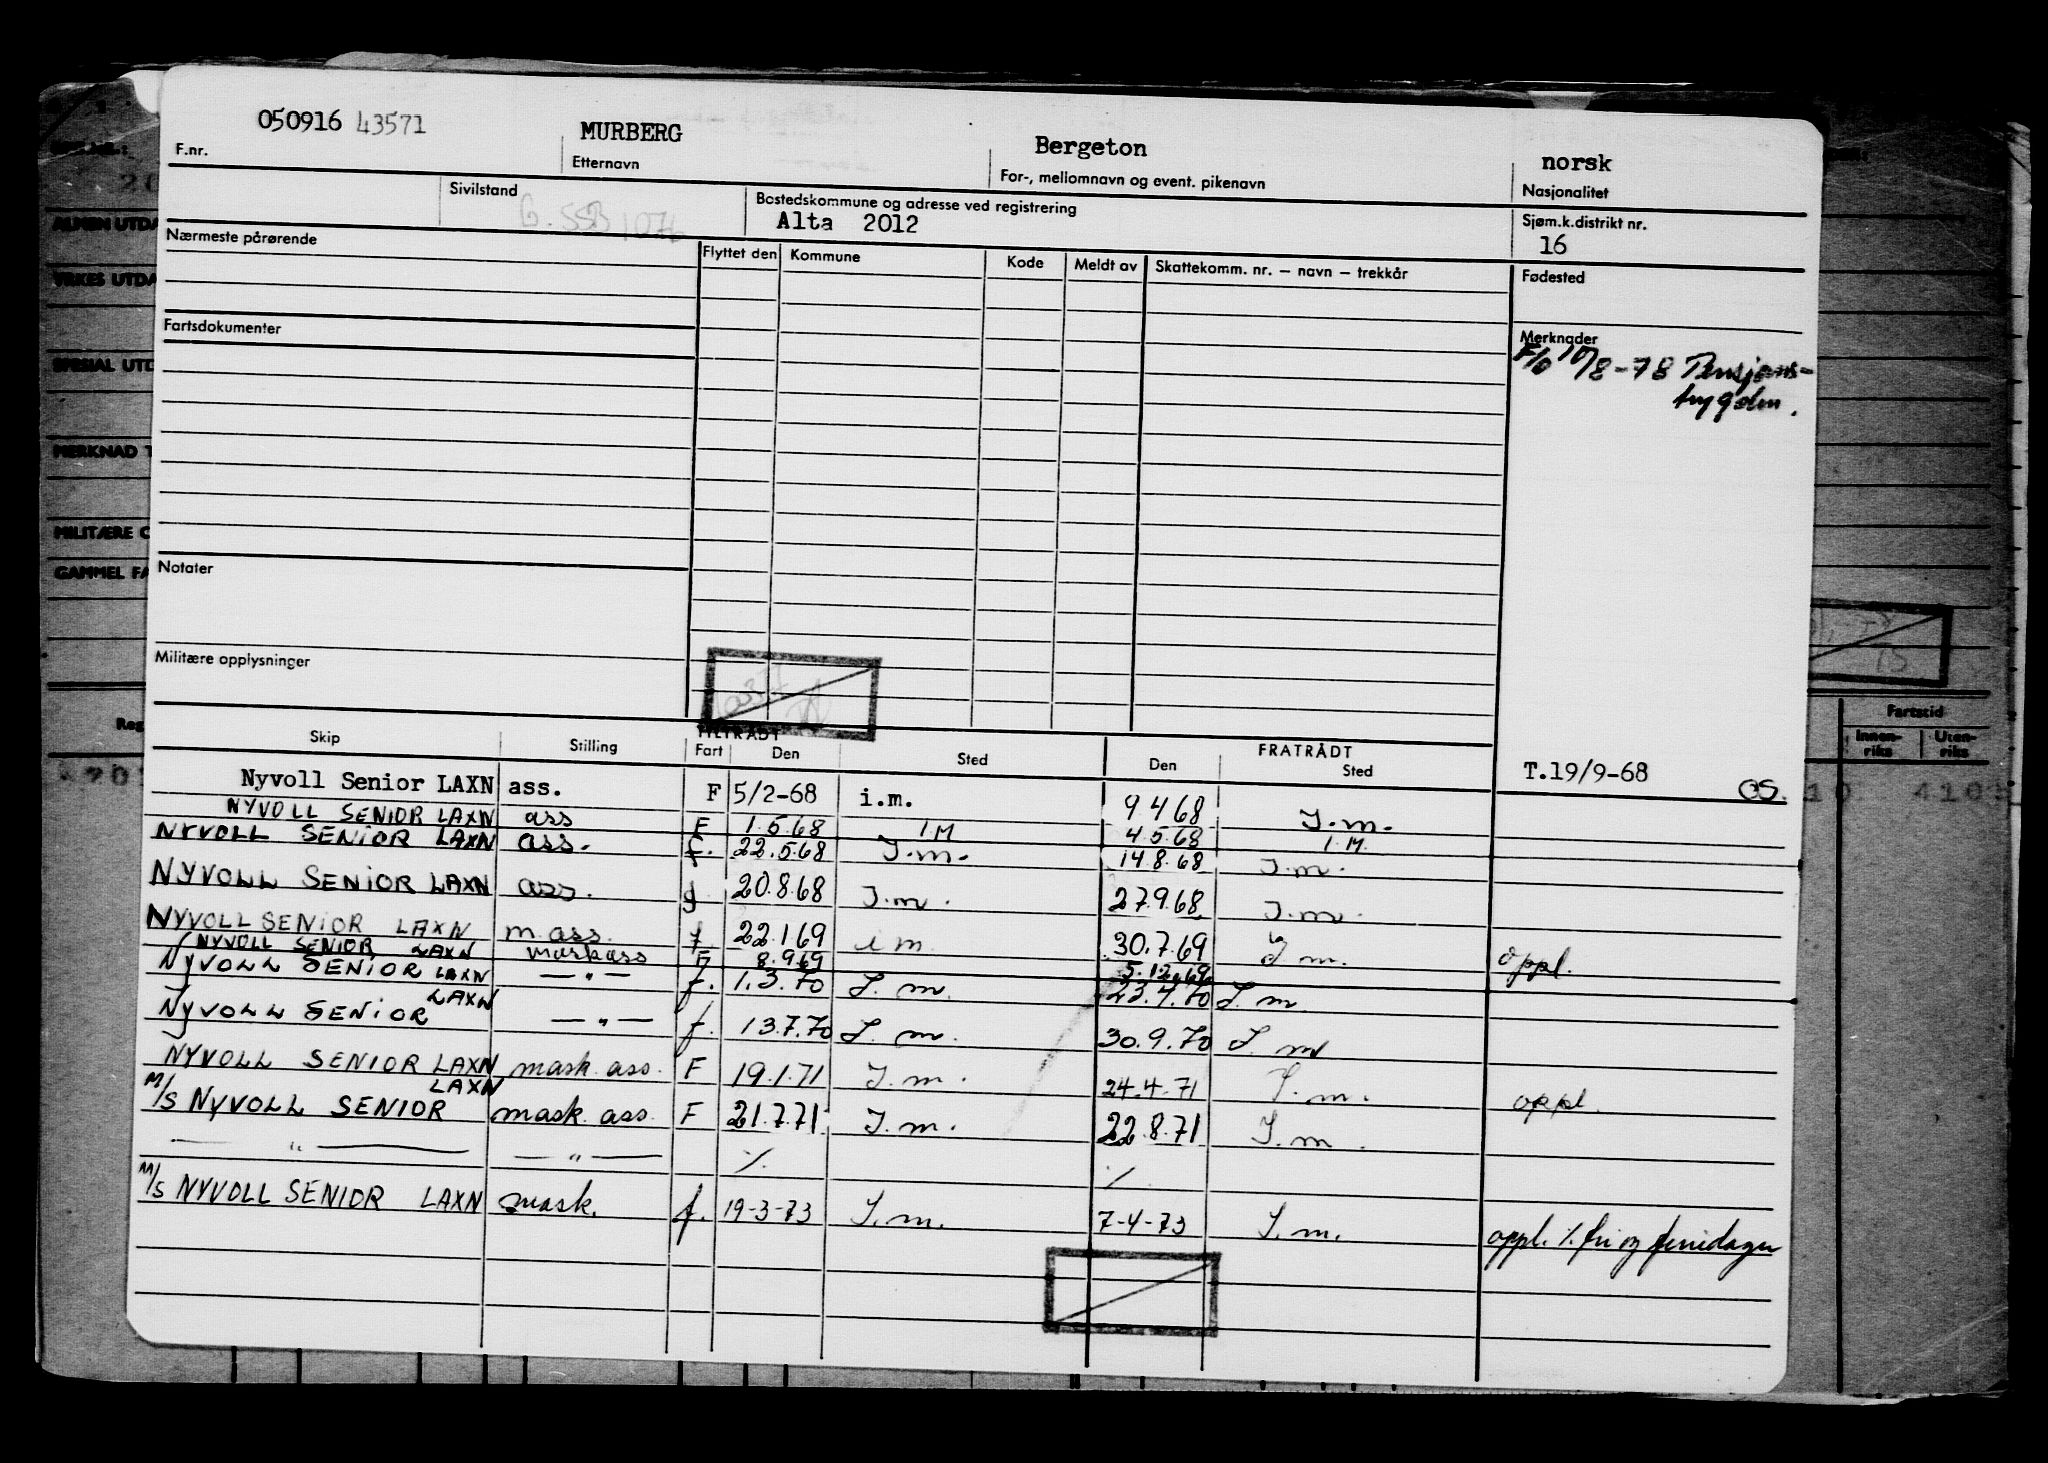 050916 43571 MURBERG Bergeton norsk
F.nr. Etternavn For-, mellomnavn og event. pikenavn Nasjonalitet
Sivilstand Bostedskommune og adresse ved registrering Sjøm.k.distrikt nr.
G. SSB 1076 Alta 2012 16
Nærmeste pårørende Flyttet den Kommune Kode Meldt av Skattekomm. nr. – navn – trekkår Fødested
Fartsdokumenter Merknader
F/o 10/8-78 Pensjons-
trygden.
Notater
Militære opplysninger
TILTRÅDT FRATRÅDT
Skip Stilling Fart Den Sted Den Sted
Nyvoll Senior LAXN ass. F 5/2-68 i.m. 9.4.68 I.m. T.19/9-68 OS.
NYVOLL SENIOR LAXN ass F 1.5.68 I.M 4.5.68 I.M.
NYVOLL SENIOR LAXN ass. f. 22.5.68 I.m. 14.8.68 I.m.
NYVOLL SENIOR LAXN ass. f 20.8.68 I.m. 27.9.68 I.m.
NYVOLL SENIOR LAXN m.ass. f. 22.1.69 i m. 30.7.69 I m. oppl.
NYVOLL SENIOR LAXN maskass F 8.9.69 5.12.69
NYVOLL SENIOR LAXN — " — f. 1.3.70 I. m. 23.4.70 I. m.
NYVOLL SENIOR LAXN — " — f. 13.7.70 I. m. 30.9.70 I. m
NYVOLL SENIOR LAXN mask. ass. F 19.1.71 I.m. 24.4.71 I.m. oppl.
M/S NYVOLL SENIOR LAXN mask. ass. F 21.7.71 I.m. 22.8.71 I.m.
— " — — " — ⁒ ⁒
M/S NYVOLL SENIOR LAXN mask. f. 19-3-73 I.m. 7-4-73 I.m. oppl. ⁒ fri og feriedager
ALMEN UTDA
YRKES UTDA
SPESIAL UTD
MERKNAD T
MILITÆRE O
GAMMEL FA
Reg
Fartstid
Innen-
riks
Uten-
riks